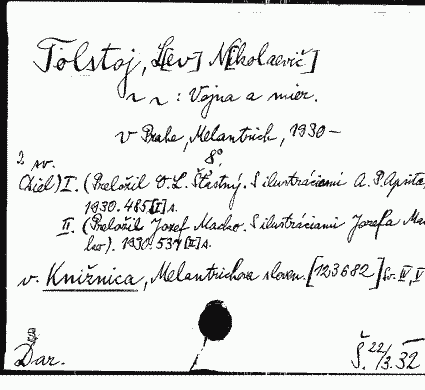 Tolstoj, L[ev] N[ikolaevič]
~ ~ : Vojna a mier.
v Prahe, Melantrich, 1930 –
2 sv. 8°.
Diel) I. (Preložil O. L. Šťastný. S ilustráciami A. P. Apsita,
1930. 485 [I] s.
II. (Preložil Jozef Macko. S ilustráciami Jozefa Ma
1930. 537 [II] s.
v. Knižnica, Melantrichova sloven. [123682] Sv. IV, V
Dar. Š. 22/3. 32